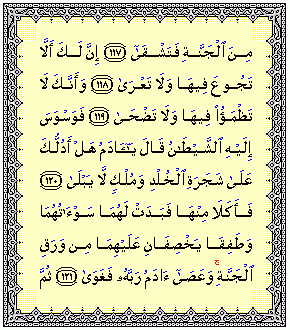 مِنَ ٱلْجَنَّةِ فَتَشْقَىٰٓ ١١٧ إِنَّ لَكَ أَلَّا
تَجُوعَ فِيهَا وَلَا تَعْرَىٰ ١١٨ وَأَنَّكَ لَا
تَظْمَؤُا۟ فِيهَا وَلَا تَضْحَىٰ ١١٩ فَوَسْوَسَ
إِلَيْهِ ٱلشَّيْطَٰنُ قَالَ يَٰٓـَٔادَمُ هَلْ أَدُلُّكَ
عَلَىٰ شَجَرَةِ ٱلْخُلْدِ وَمُلْكٍ لَّا يَبْلَىٰ ١٢٠
فَأَكَلَا مِنْهَا فَبَدَتْ لَهُمَا سَوْءَٰتُهُمَا
وَطَفِقَا يَخْصِفَانِ عَلَيْهِمَا مِن وَرَقِ
ٱلْجَنَّةِ ۚ وَعَصَىٰٓ ءَادَمُ رَبَّهُۥ فَغَوَىٰ ١٢١ ثُمَّ